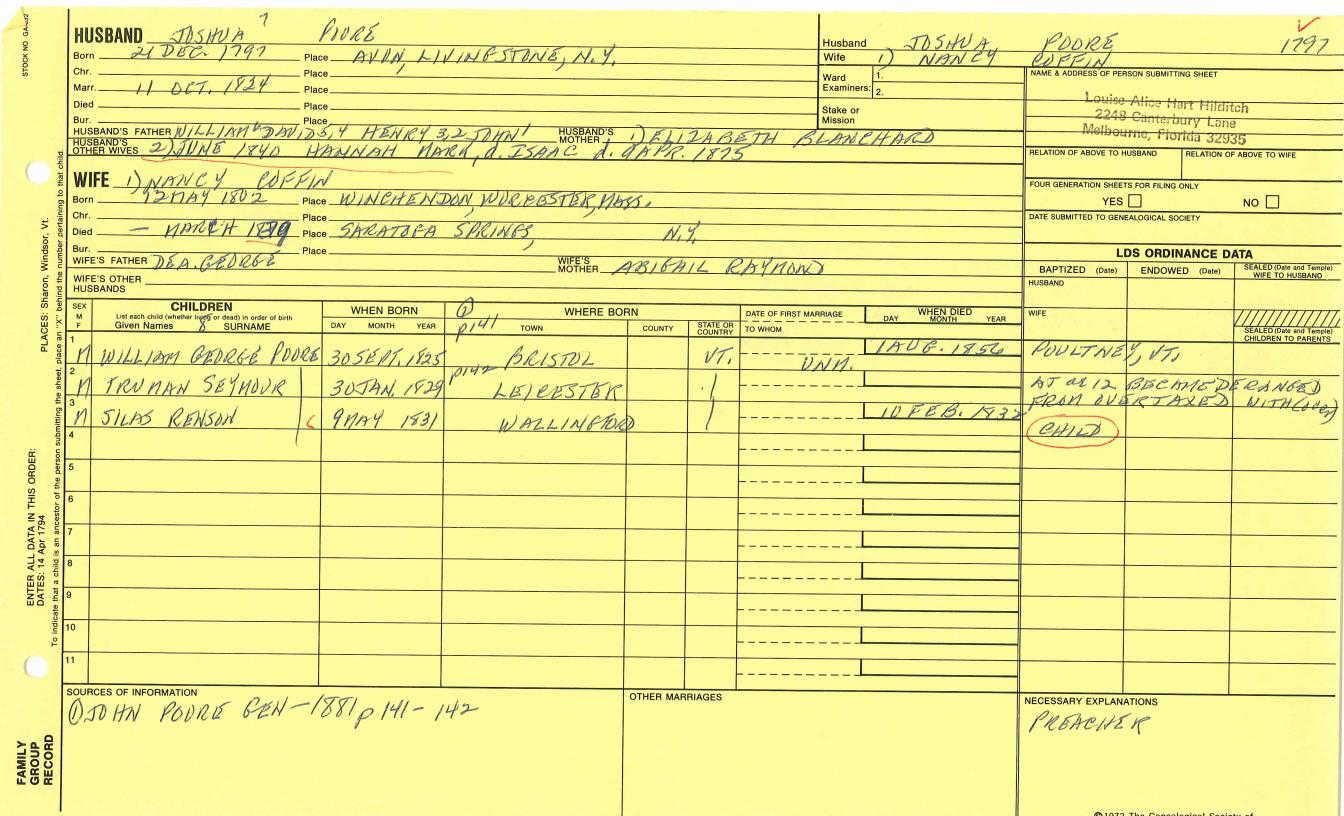 STOCK NO. GA-
HUSBAND JOSHUA 7 POORE
Born 21 DEC. 1797 Place AVON, LIVINGSTONE, N.Y.
Chr. Place
Marr. 11 OCT. 1824 Place
Died Place
Bur. Place
HUSBAND'S FATHER WILLIAM DAVID 5,4 HENRY 3,2 JOHN 1 HUSBAND'S MOTHER 1) ELIZABETH BLANCHARD
HUSBAND'S OTHER WIVES 2) JUNE 1840 HANNAH MARK, d. ISAAC d. 9 APR. 1875
Husband JOSHUA POORE 1797
Wife 1) NANCY COFFIN
Ward Examiners: 1.
2.
Stake or Mission
NAME & ADDRESS OF PERSON SUBMITTING SHEET
Louise Alice Hart Hilditch
2248 Canterbury Lane
Melbourne, Florida 32935
RELATION OF ABOVE TO HUSBAND RELATION OF ABOVE TO WIFE
FOUR GENERATION SHEETS FOR FILING ONLY
YES NO
DATE SUBMITTED TO GENEALOGICAL SOCIETY
WIFE 1) NANCY COFFIN
Born 12 MAY 1802 Place WINCHENDON, WORCESTER, MASS.
Chr. Place
Died — MARCH Place SARATOGA SPRINGS, N.Y.
Bur. Place
WIFE'S FATHER DEA. GEORGE WIFE'S MOTHER ABIGAIL RAYMOND
WIFE'S OTHER HUSBANDS
LDS ORDINANCE DATA
BAPTIZED (Date) ENDOWED (Date) SEALED (Date and Temple) WIFE TO HUSBAND
HUSBAND
WIFE
SEALED (Date and Temple) CHILDREN TO PARENTS
SEX M F
CHILDREN
List each child (whether living or dead) in order of birth
Given Names 8 SURNAME
WHEN BORN
DAY MONTH YEAR
WHERE BORN
TOWN COUNTY STATE OR COUNTRY
DATE OF FIRST MARRIAGE
TO WHOM
WHEN DIED
DAY MONTH YEAR
1 M WILLIAM GEORGE POORE 30 SEPT. 1825 p141 BRISTOL VT. UNM. 1 AUG. 1856 POULTNEY, VT.
2 M TRUMAN SEYMOUR 30 JAN. 1829 p142 LEICESTER AT 12 BECAME DERANGED
FROM OVERTAXED
3 M SILAS RENSON 9 MAY 1831 WALLINGFORD 10 FEB. 1832 CHILD
4
5
6
7
8
9
10
11
SOURCES OF INFORMATION
① JOHN POORE GEN — 1881 p 141 - 142
OTHER MARRIAGES
NECESSARY EXPLANATIONS
PREACHER
ENTER ALL DATA IN THIS ORDER:
DATES: 14 Apr 1794 PLACES: Sharon, Windsor, Vt.
To indicate that a child is an ancestor of the person submitting the sheet, place an "X" behind the number pertaining to that child.
FAMILY GROUP RECORD
©1972 The Genealogical Society of